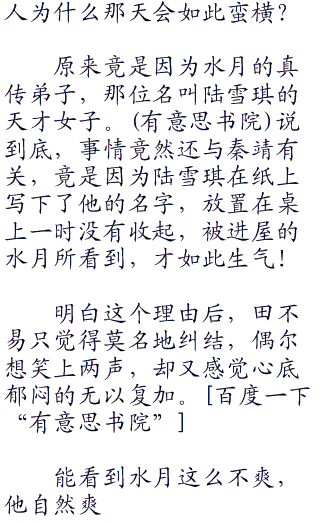 人为什么那天会如此蛮横？
原来竟是因为水月的真
传弟子，那位名叫陆雪琪的
天才女子。(有意思书院)说
到底，事情竟然还与秦靖有
关，竟是因为陆雪琪在纸上
写下了他的名字，放置在桌
上一时没有收起，被进屋的
水月所看到，才如此生气！
明白这个理由后，田不
易只觉得莫名地纠结，偶尔
想笑上两声，却又感觉心底
郁闷的无以复加。[百度一下
“有意思书院”]
能看到水月这么不爽，
他自然爽